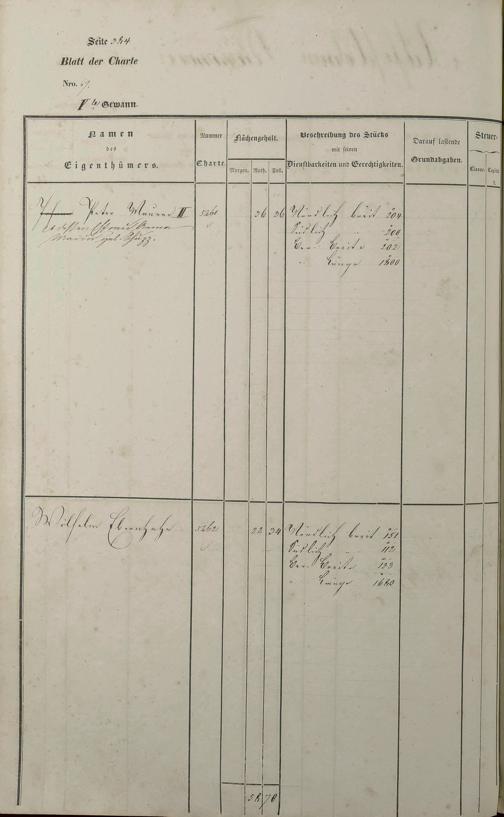 Seite 384
Blatt der Charte
Nro. 9.
V te Gewann.
Namen des Eigenthümers.
Nummer Charte.
Flächengehalt.
Morgen. Ruth. Fuß.
Beschreibung des Stücks mit seinen Dienstbarkeiten und Gerechtigkeiten.
Darauf lastende Grundabgaben.
Steuer-
Classe. Capital
Peter Maurer II 5261 36 36 Nördlich breit 204
Südlich " 200
Ber. Breite 202
" Länge 1800
Wilhelm 5262 22 34 Nördlich breit 151
Südlich " 112
Ber. Breite 133
" Länge 1680
58 70